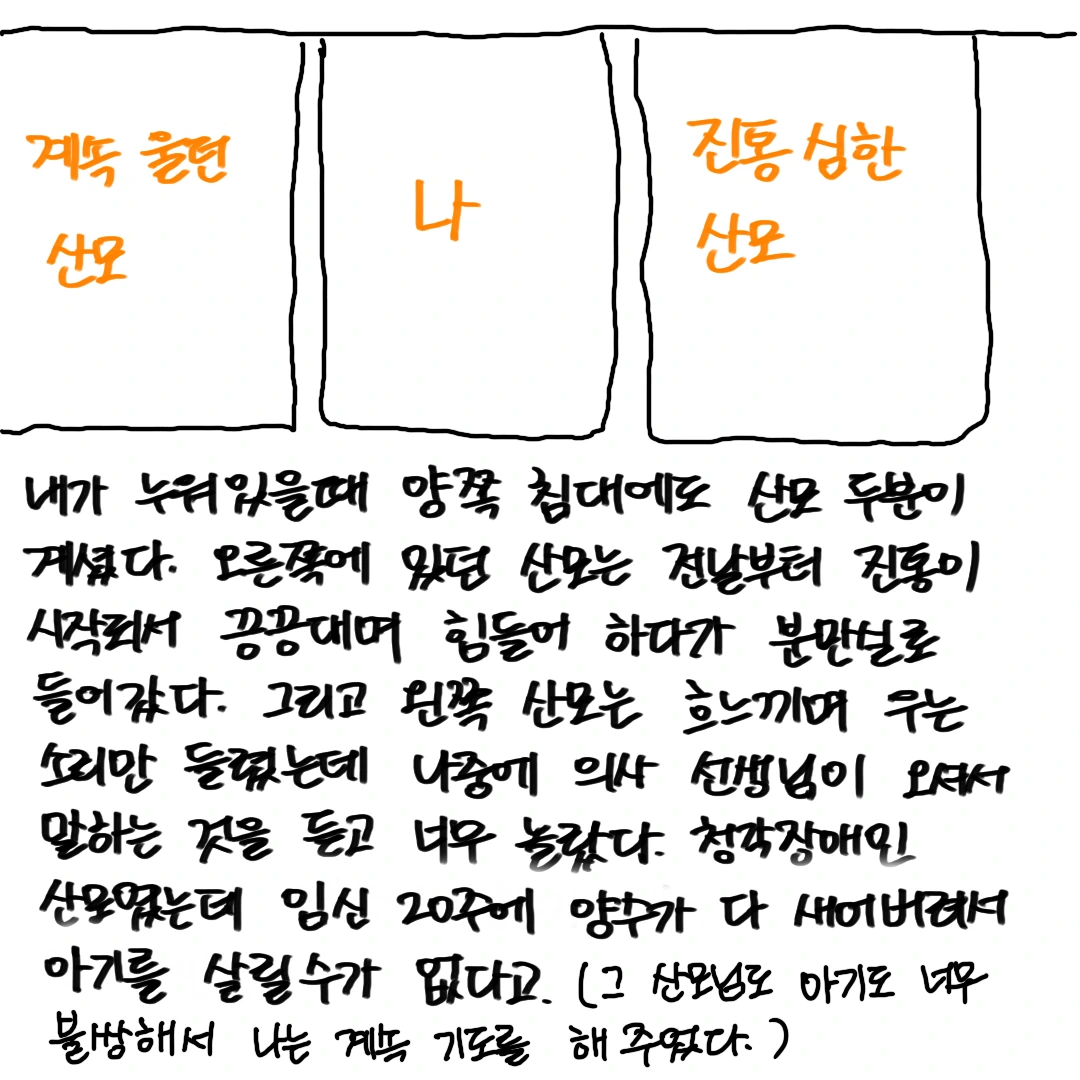 계속 울던
산모
나
진통 심한
산모
내가 누워있을때 양쪽 침대에도 산모 두분이
계셨다. 오른쪽에 있던 산모는 전날부터 진통이
시작되서 끙끙대며 힘들어 하다가 분만실로
들어갔다. 그리고 왼쪽 산모는 흐느끼며 우는
소리만 들렸는데 나중에 의사 선생님이 오셔서
말하는 것을 듣고 너무 놀랐다. 청각장애인
산모였는데 임신 20주에 양수가 다 새어버려서
아기를 살릴수가 없다고. (그 산모님도 아기도 너무
불쌍해서 나는 계속 기도를 해 주었다.)